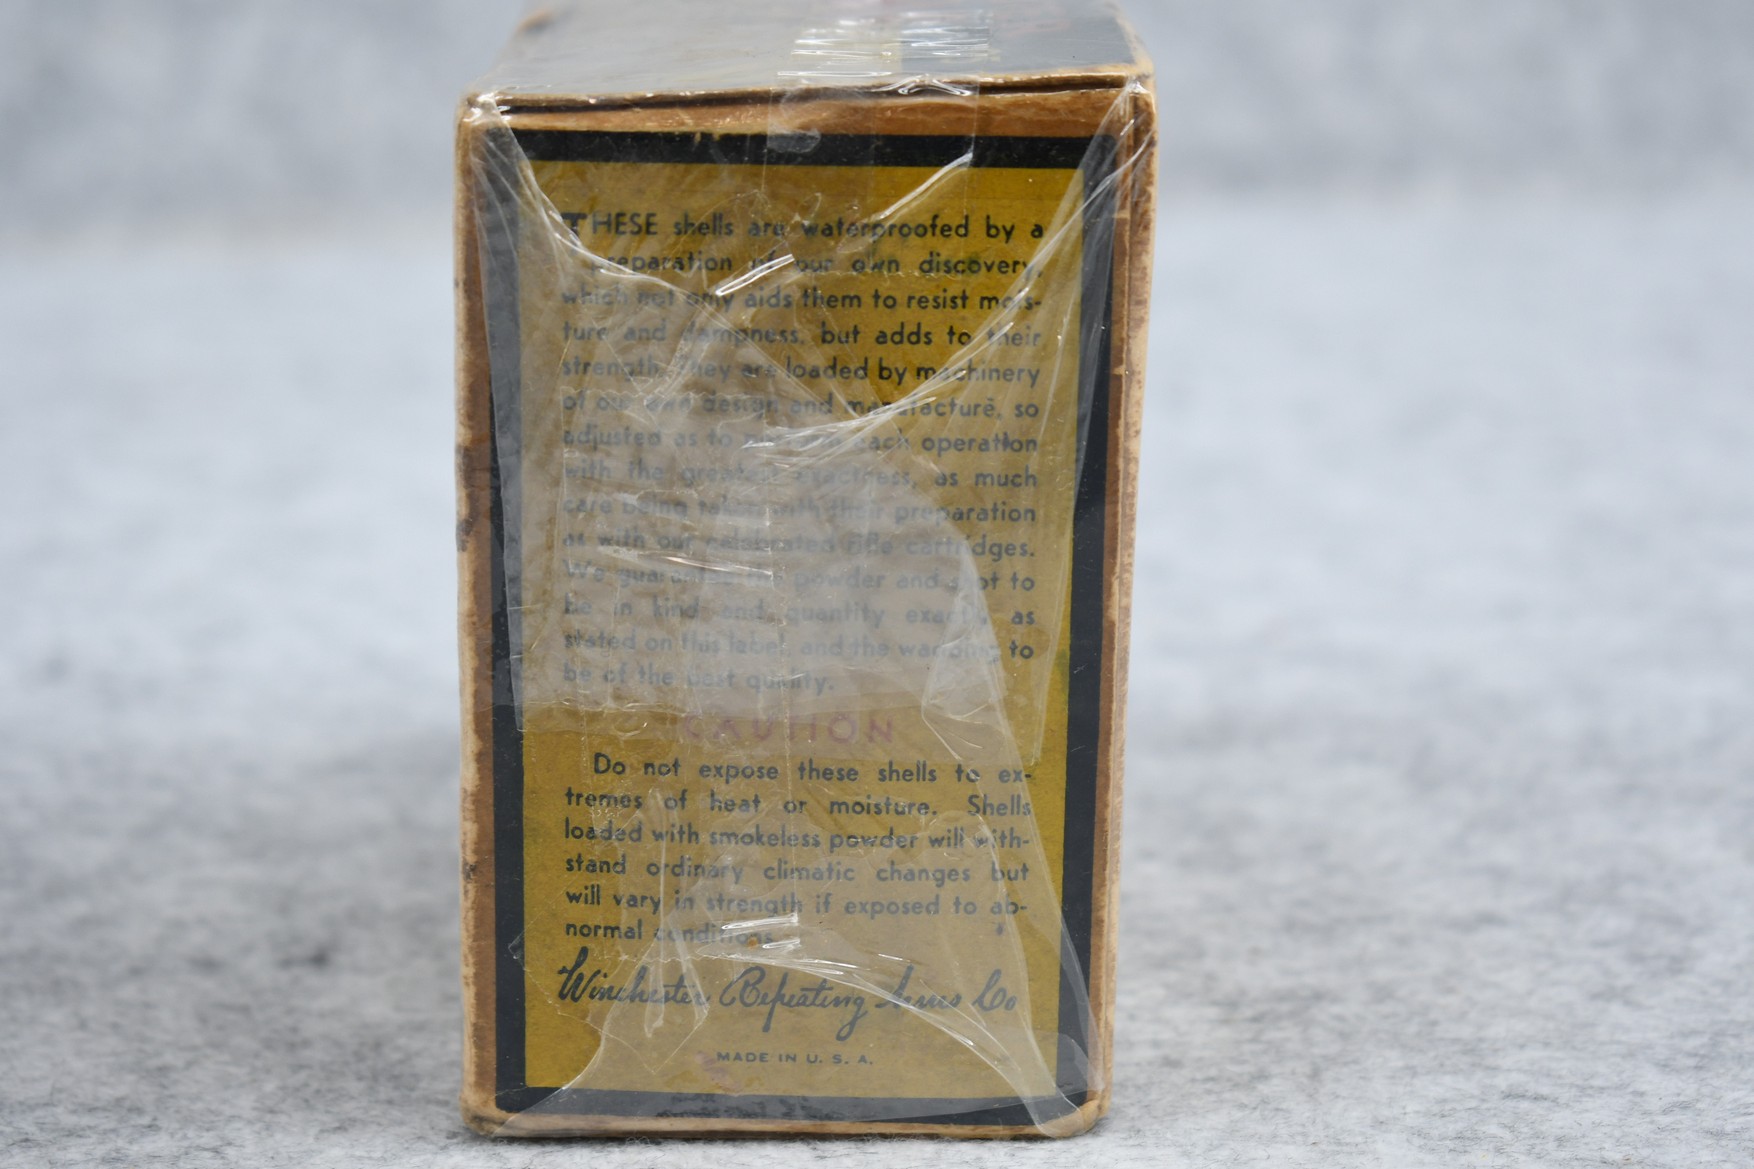 THESE shells are waterproofed by a
preparation of our own discovery,
which not only aids them to resist mois-
ture and dampness, but adds to their
strength. They are loaded by machinery
of our own design and manufacture, so
adjusted as to perform each operation
with the greatest exactness, as much
care being taken with their preparation
as with our celebrated rifle cartridges.
We guarantee the powder and shot to
be in kind and quantity exactly as
stated on this label, and the wadding to
be of the best quality.
CAUTION
Do not expose these shells to ex-
tremes of heat or moisture. Shells
loaded with smokeless powder will with-
stand ordinary climatic changes but
will vary in strength if exposed to ab-
normal conditions.
Winchester Repeating Arms Co
MADE IN U. S. A.